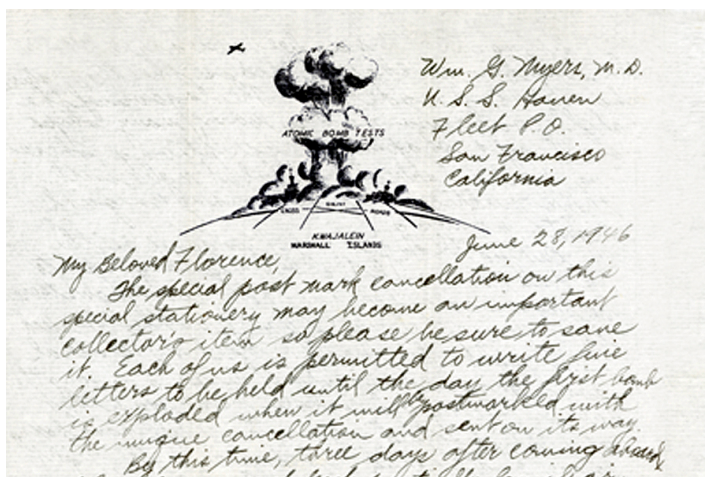 Wm. G. Myers, M.D.
U.S.S. Haven
Fleet P.O.
San Francisco
California
ATOMIC BOMB TESTS
BIKINI
CROSS ROADS
KWAJALEIN
MARSHALL ISLANDS
June 28, 1946
My Beloved Florence,
The special post mark cancellation on this
special stationery may become an important
collector's item so please be sure to save
it. Each of us is permitted to write five
letters to be held until the day the first bomb
is exploded when it will be postmarked with
the unique cancellation and sent on its way.
By this time, three days after coming aboard,